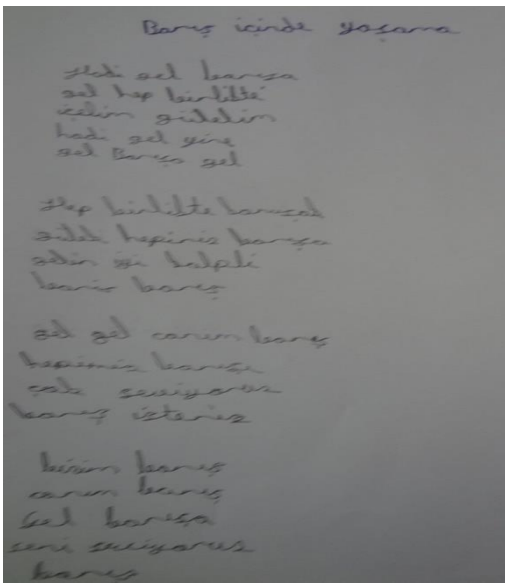 Barış içinde yaşama
Hadi gel barışa
gel hep birlikte
içelim gülelim
hadi gel yine
gel Barışa gel
Hep birlikte barışak
gülek hepiniz barışa
gelin iyi kalpli
barış
gel gel canım barış
hepimiz barışı
çok seviyoruz
barış isteriz
bizim barış
canım barış
Gel barışa
seni seviyoruz
barış